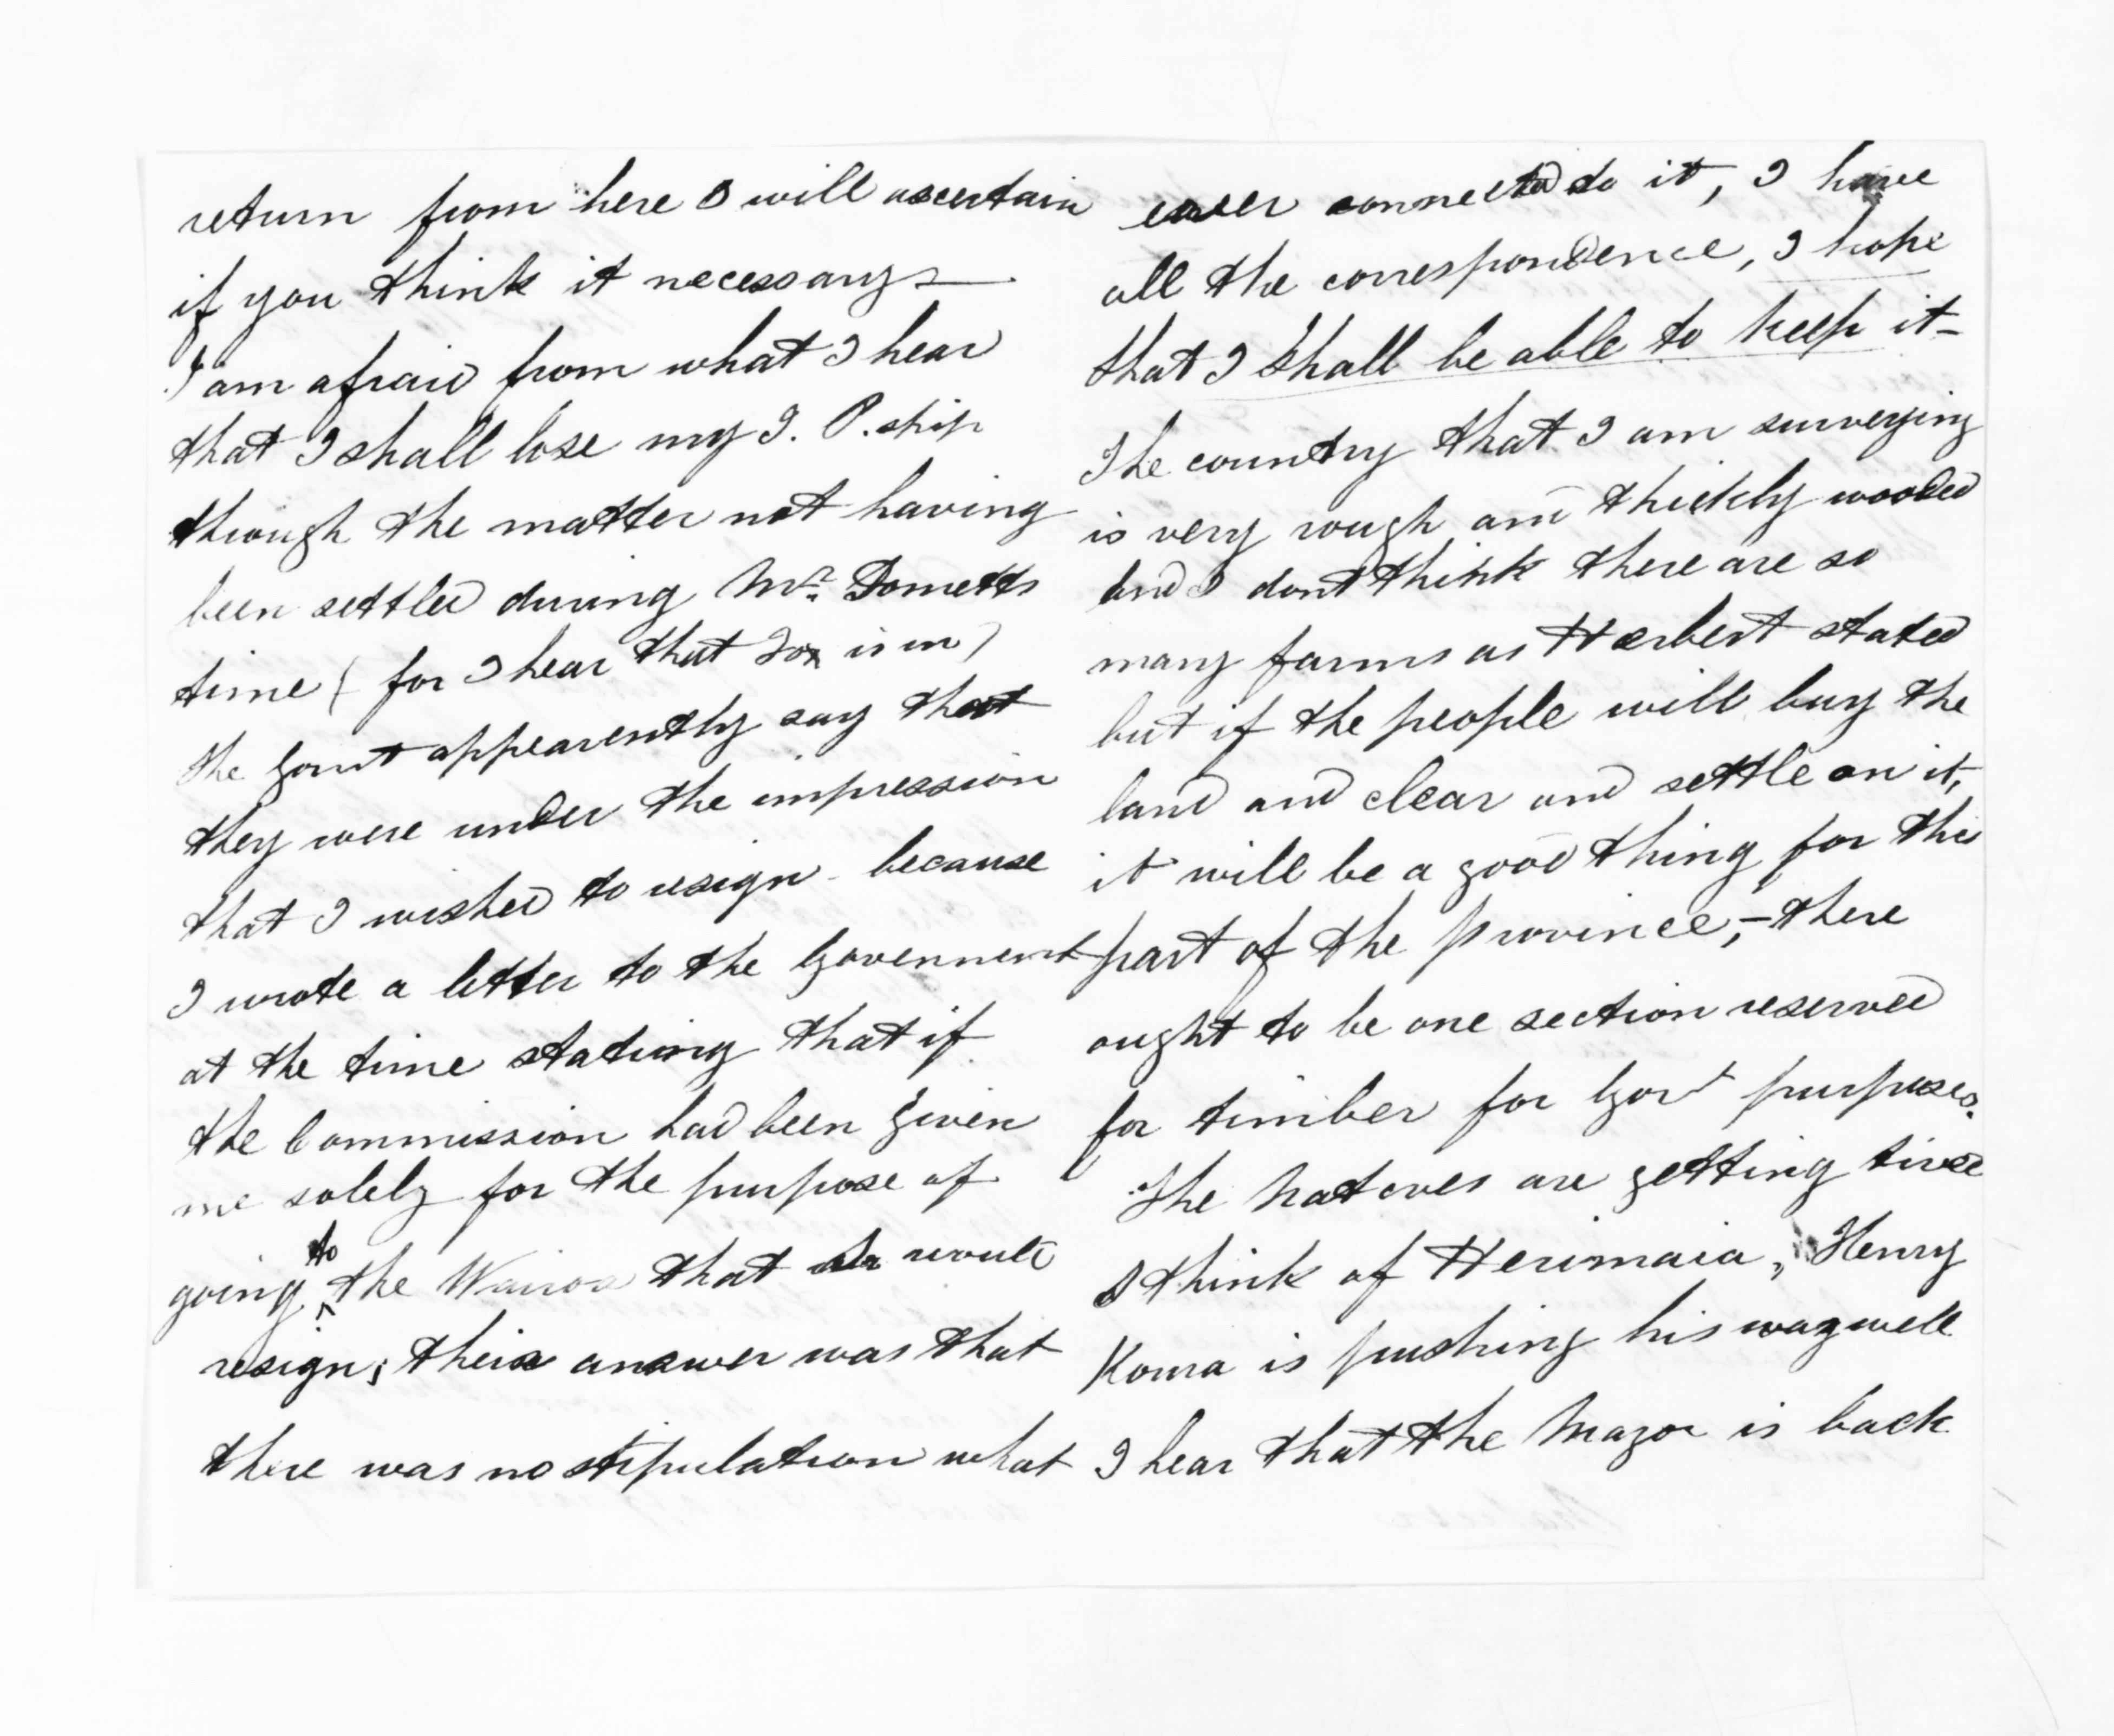 return from here I will ascertain
if you think it necessary —
I am afraid from what I hear
that I shall lose my J. P. ship
through the matter not having
been settled during Mr. Dometts
time ( for I hear that Fox is in )
the Govt appearently say that
they were under the impression
that I wished to resign - because
I wrote a letter to the Government
at the time stating that if
the Commission had been given
me solely for the purpose of
going to the Wairoa that I would
resign; their answer was that
there was no stipulation what
ever connected to it, I have
all the correspondence, I hope
that I shall be able to keep it -
The country that I am surveying
is very rough and thickly wooded
and I dont think there are so
many farms as Herbert stated
but if the people will buy the
land and clear and settle on it,
it will be a good thing for this
part of the province, - there
ought to be one section reserved
for timber for Govt purposes.
The natives are getting tired
I think of Herimaia, Henry
is pushing his way well
I hear that the Major is back